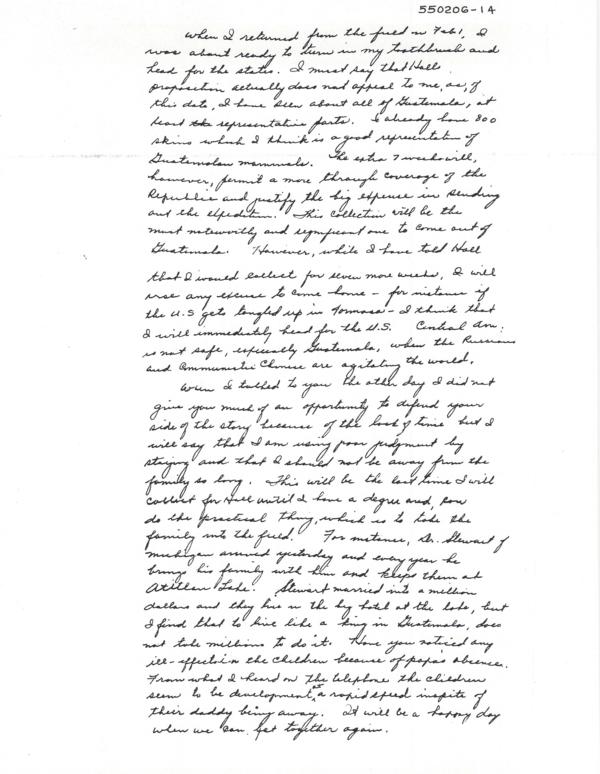 550206-1A
When I returned from the field on Feb 1, I
was about ready to turn in my toothbrush and
head for the states. I must say that Halls
proposition actually does not appeal to me, as, of
this date, I have seen about all of Guatemala, at
least the representative parts. I already have 800
skins which I think is a good representation of
Guatemalan mammals. The extra 7 weeks will,
however, permit a more through coverage of the
Republic and justify the big expense in sending
out the expedition. This collection will be the
most noteworthy and significant one to come out of
Guatemala. However, while I have told Hall
that I would collect for seven more weeks, I will
use any excuse to come home - for instance if
the U.S gets tangled up in Formosa - I think that
I will immediately head for the U.S. Central Am.
is not safe, especially Guatemala, when the Russians
and Communistic Chinese are agitating the world.
When I talked to you the other day I did not
give you much of an opportunity to defend your
side of the story because of the lack of time but I
will say that I am using poor judgment by
staying and that I should not be away from the
family so long. This will be the last time I will
collect for Hall until I have a degree and can
do the practical thing, which is to take the
family into the field. For instance, Dr. Stewart of
Michigan arrived yesterday and every year he
brings his family with him and keeps them at
Atitlan Lake. Stewart married into a million
dollars and they live in the big hotel at the lake, but
I find that to live like a king in Guatemala, does
not take millions to do it. Have you noticed any
ill-effects in the children because of papa's absence.
From what I heard on the telephone the children
seem to be development at a rapid speed inspite of
their daddy being away. It will be a happy day
when we can get together again.